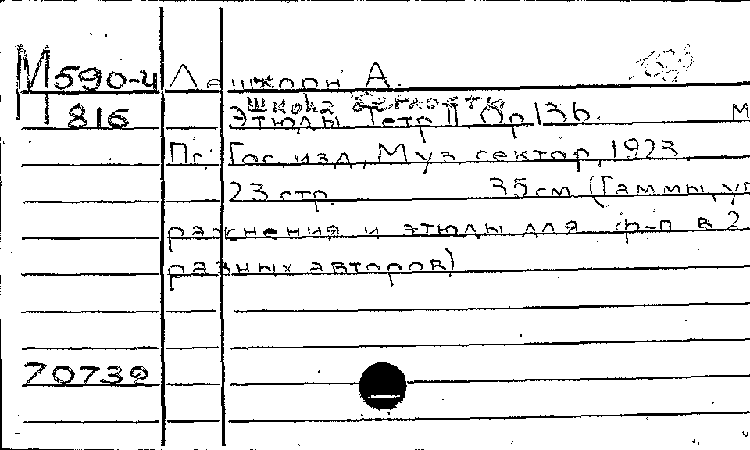 М590-4 Лешгорн А.
Школа беглости
816 Этюды. Тетр II Op 136. М
Пг. Гос. изд., Муз. сектор, 1923
23 стр. 35 см (Гаммы, уп
ражнения и этюды для ф-п в 2
разных авторов)
70739